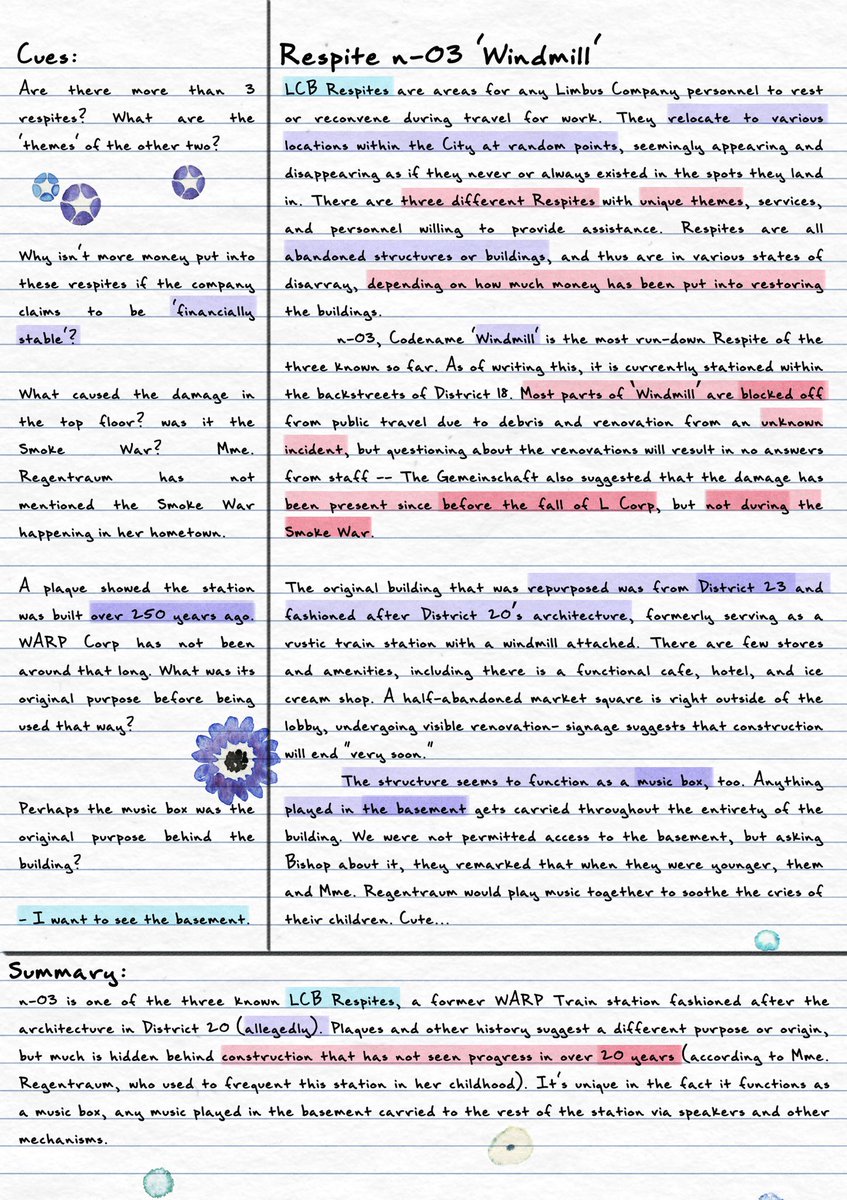 Cues:
Are there more than 3
respites? What are the
'themes' of the other two?
Why isn't more money put into
these respites if the company
claims to be 'financially
stable'?
What caused the damage in
the top floor? was it the
Smoke War? Mme.
Regentraum has not
mentioned the Smoke War
happening in her hometown.
A plaque showed the station
was built over 250 years ago.
WARP Corp has not been
around that long. What was its
original purpose before being
used that way?
Perhaps the music box was the
original purpose behind the
building?
- I want to see the basement.
Respite n-03 'Windmill'
LCB Respites are areas for any Limbus Company personnel to rest
or reconvene during travel for work. They relocate to various
locations within the City at random points, seemingly appearing and
disappearing as if they never or always existed in the spots they land
in. There are three different Respites with unique themes, services,
and personnel willing to provide assistance. Respites are all
abandoned structures or buildings, and thus are in various states of
disarray, depending on how much money has been put into restoring
the buildings.
n-03, Codename 'Windmill' is the most run-down Respite of the
three known so far. As of writing this, it is currently stationed within
the backstreets of District 18. Most parts of 'Windmill' are blocked off
from public travel due to debris and renovation from an unknown
incident, but questioning about the renovations will result in no answers
from staff -- The Gemeinschaft also suggested that the damage has
been present since before the fall of L Corp, but not during the
Smoke War.
The original building that was repurposed was from District 23 and
fashioned after District 20's architecture, formerly serving as a
rustic train station with a windmill attached. There are few stores
and amenities, including there is a functional cafe, hotel, and ice
cream shop. A half-abandoned market square is right outside of the
lobby, undergoing visible renovation- signage suggests that construction
will end "very soon."
The structure seems to function as a music box, too. Anything
played in the basement gets carried throughout the entirety of the
building. We were not permitted access to the basement, but asking
Bishop about it, they remarked that when they were younger, them
and Mme. Regentraum would play music together to soothe the cries of
their children. Cute...
Summary:
n-03 is one of the three known LCB Respites, a former WARP Train station fashioned after the
architecture in District 20 (allegedly). Plaques and other history suggest a different purpose or origin,
but much is hidden behind construction that has not seen progress in over 20 years (according to Mme.
Regentraum, who used to frequent this station in her childhood). It's unique in the fact it functions as
a music box, any music played in the basement carried to the rest of the station via speakers and other
mechanisms.